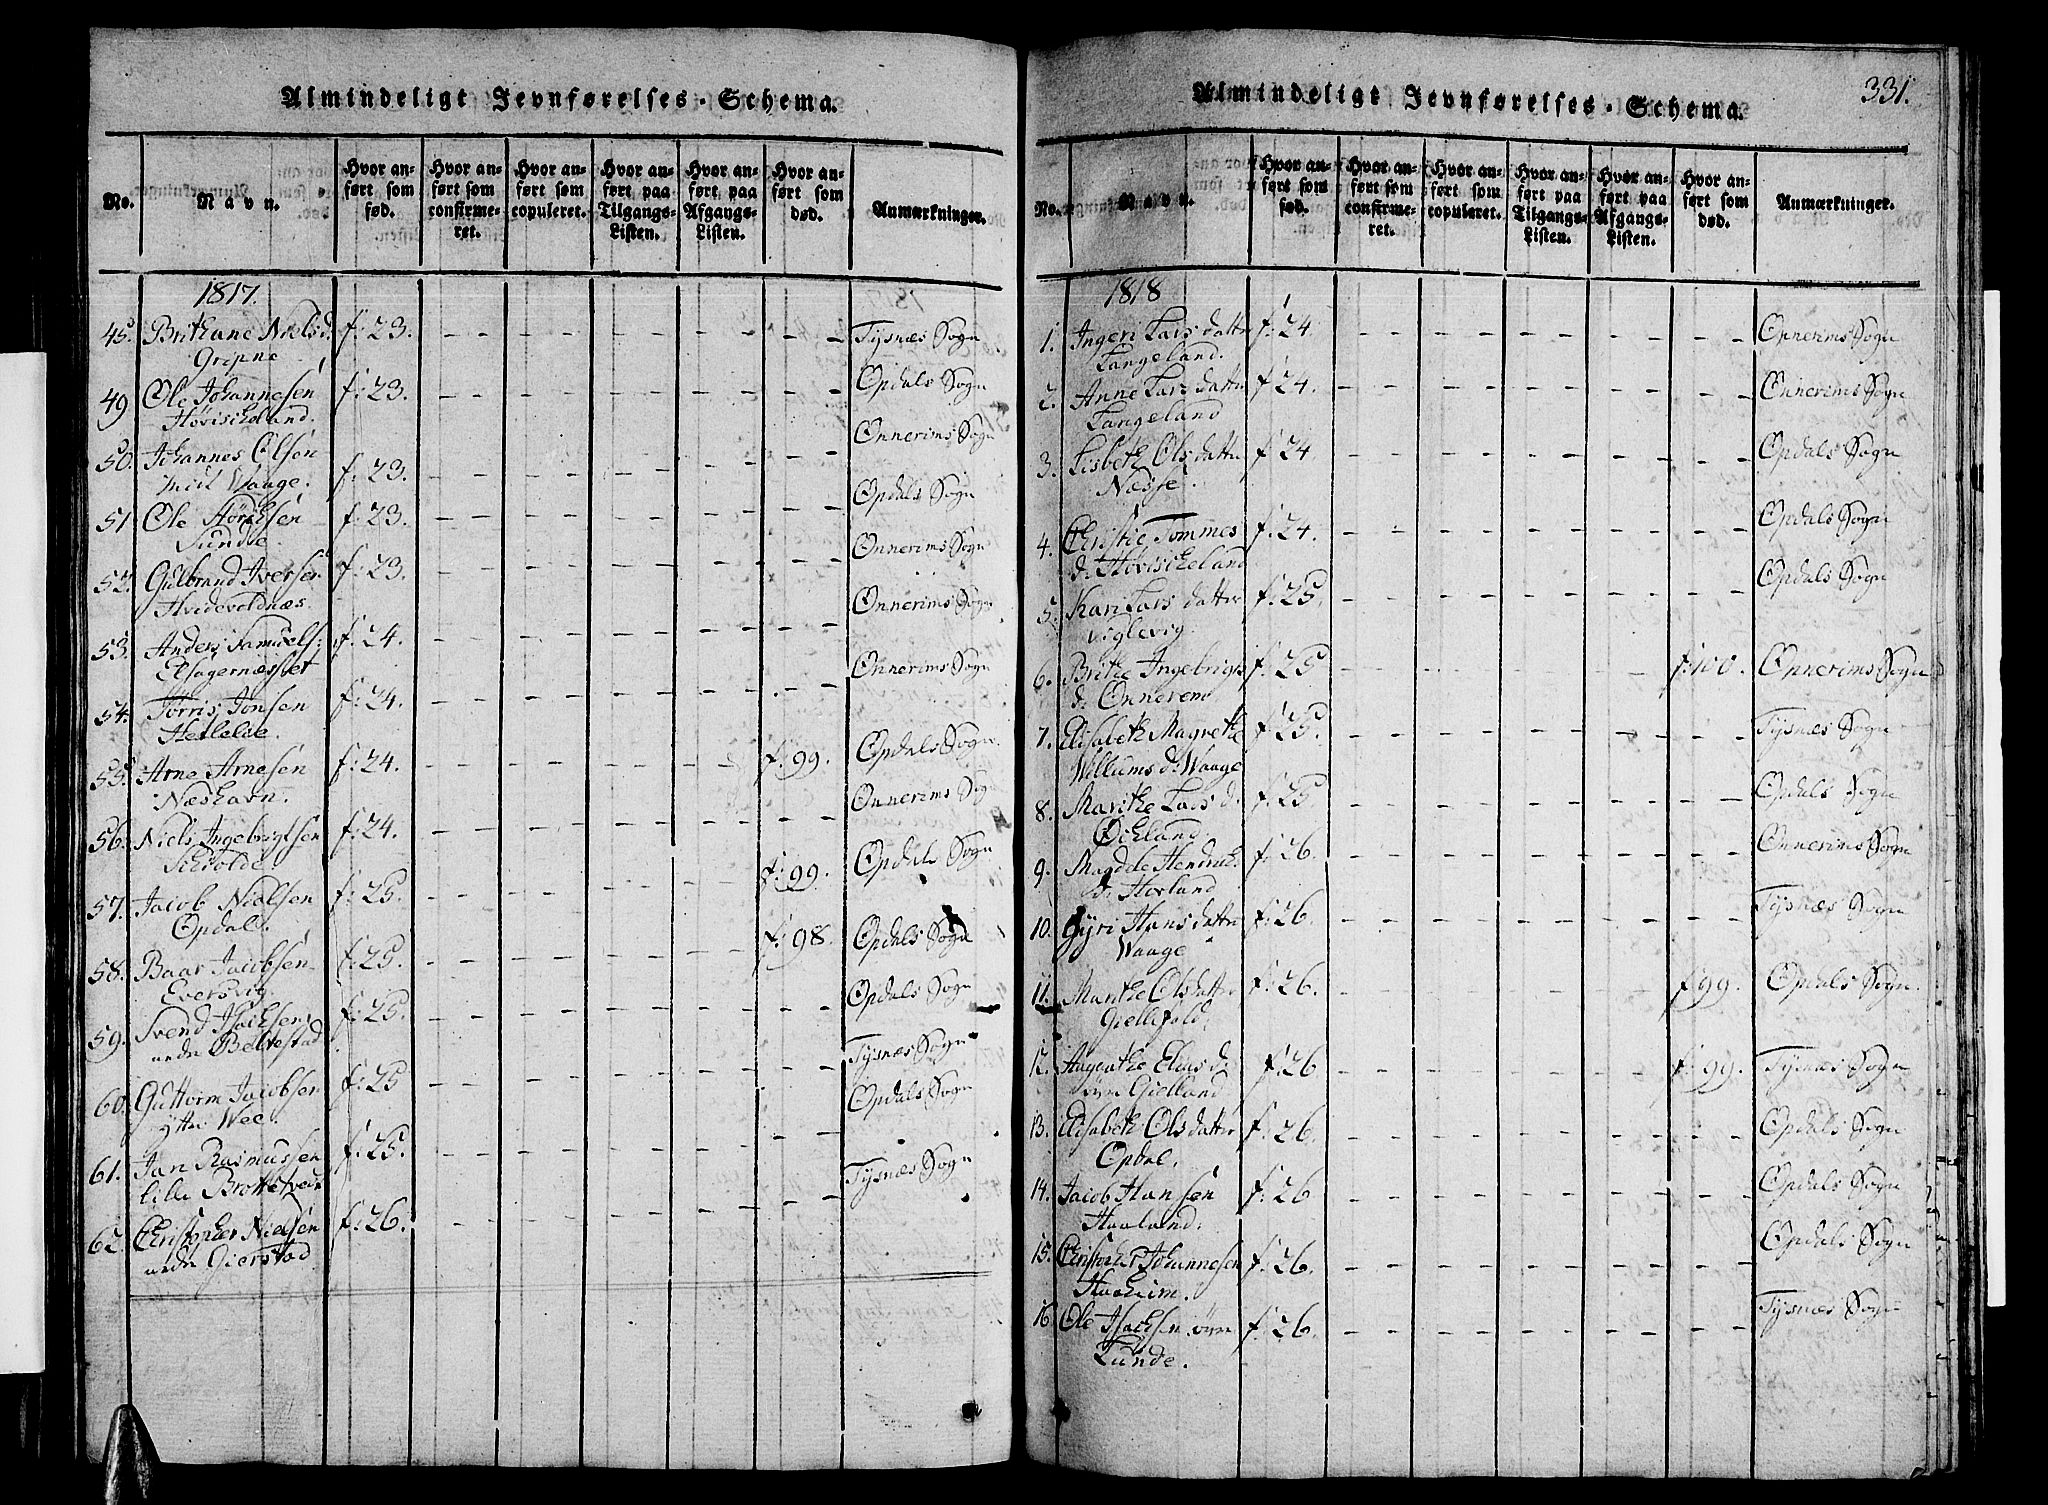 Almindeligt Jevnførelses-Schema.
No. Navn. Hvor anført som fød. Hvor anført som confirmeret. Hvor anført som copuleret. Hvor anført paa Tilgangs-Listen. Hvor anført paa Afgangs-Listen. Hvor anført som død. Anmærkninger.
1817.
45. Brithane Nielsd. f: 23. Tysnæs Sogn
Gripne
49 Ole Johannesen f: 23. Opdals Sogn
Høviskeland.
50. Johannes Olsen Onnerims Sogn
Waage. f: 23.
51 Ole f: 23. Opdals Sogn
Sunde
52. Gulbrand Iversen f: 23. Onnerims Sogn
Hvidevoldnæs.
53. Anders Samuels: f: 24. Onnerims Sogn
54. Tørris Jonsen f: 24. Onnerims Sogn
55. Arne Arnesen f: 24. f: 99. Opdals Sogn
Næshavn.
56. Niels Ingebrigtsen f: 24. Onnerims Sogn
57. Jacob Nielsen f: 25. f: 99. Opdals Sogn
Opdal.
58. Baar Jacobsen f: 25. f: 98. Opdals Sogn
Eversvig.
59. Svend Isachsen f: 25. Opdals Sogn
nedre Beltestad
60. Guttorm Jacobsen f: 25 Tysnæs Sogn
ytre Wee.
61. Jan Rasmussen f: 25. Opdals Sogn
lille
62. Christopher Nielsen f: 26. Tysnæs Sogn
nedre Gierstad
331.
Almindeligt Jevnførelses-Schema.
No. Navn. Hvor anført som fød. Hvor anført som confirmeret. Hvor anført som copuleret. Hvor anført paa Tilgangs-Listen. Hvor anført paa Afgangs-Listen. Hvor anført som død. Anmærkninger.
1818
1. Ingeri Lars datter f: 24 Onnerims Sogn
Langeland.
2. Anne Lars datter f: 24. Onnerims Sogn
Langeland
3. Lisbeth Ols datter f: 24 Opdals Sogn
Næsse.
4. Christie Tommes f: 24. Opdals Sogn
d. Høviskeland
5. Kari Lars datter f: 25. Opdals Sogn
Viglevig.
6. Brithe Ingebrigts f: 25 f: 100. Onnerims Sogn
d. Onnerem
7. Elisabeth Magrethe f: 25. Tysnæs Sogn
Willums d. Waage
8. Marithe Lars d. f: 25 Opdals Sogn
Økland
9. Magdele Hendrich f: 26. Onnerims Sogn
d. Hovland
10. Gyri Hans datter f: 26. Tysnæs Sogn
Waage
11. Marithe Olsdatter f: 26. f: 99. Opdals Sogn
12. Aagathe Elias d. f: 26 f: 99. Tysnæs Sogn
Gielland
13. Elisabeth Olsdatter f: 26. Opdals Sogn
Opdal.
14. Jacob Hansen f: 26 Opdals Sogn
Haaland.
15. Christopher Johannesen f: 26. Opdals Sogn
Haaheim.
16. Ole Isachsen øvre f: 26. Tysnæs Sogn
Lunde.